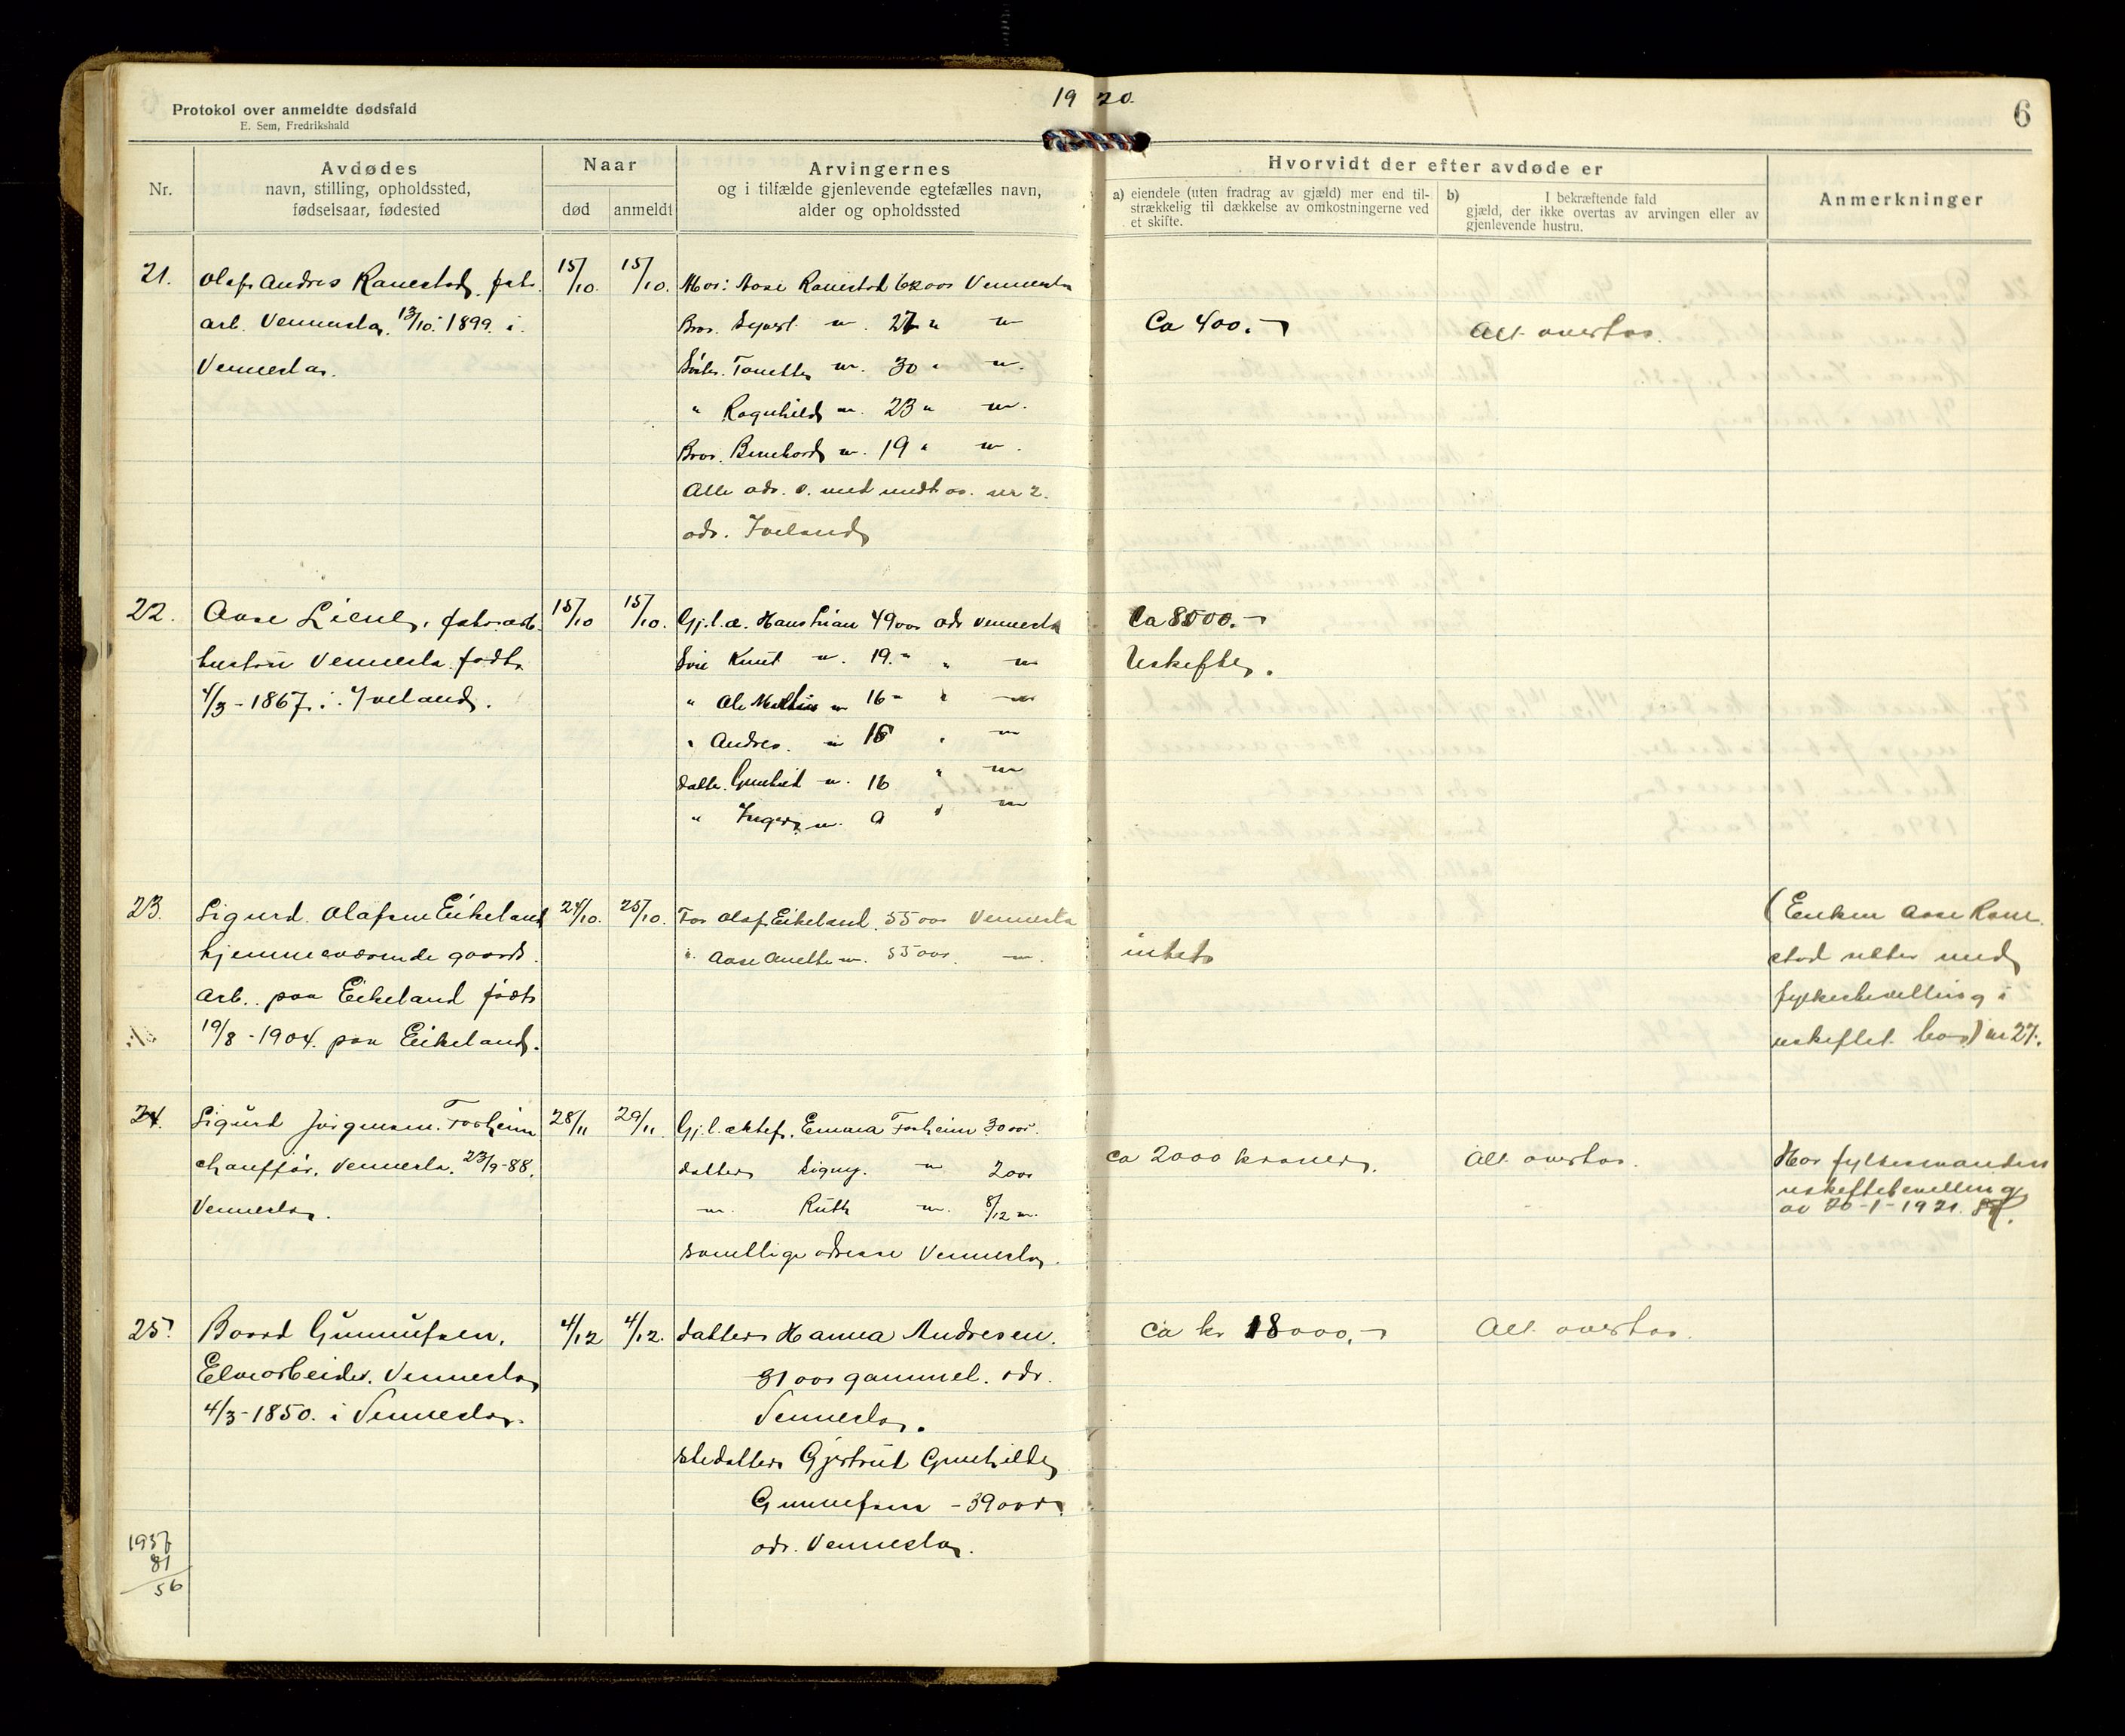 1920.
6
Protokol over anmeldte dødsfald
E. Sem, Fredrikshald
Nr.
Avdødes
navn, stilling, opholdssted,
fødselsaar, fødested
Naar
død
anmeldt
Arvingernes
og i tilfælde gjenlevende egtefælles navn,
alder og opholdssted
Hvorvidt der efter avdøde er
a) eiendele (uten fradrag av gjæld) mer end til-
strækkelig til dækkelse av omkostningerne ved
et skifte.
b) I bekræftende fald
gjæld, der ikke overtas av arvingen eller av
gjenlevende hustru.
Anmerkninger
21.
Olaf Andres Ranestad. fabr.
arb. Vennesla. 13/10. 1899. i.
Vennesla.
15/10.
15/10.
Mor: Aase Ranestad 62 aar Vennesla
Bror. Syvert " 27 " "
Søster. Tanette " 30 " "
" Ragnhild " 23 " "
Bror. Bernhard " 19 " "
Alle adr. V.
adr. Iveland
Ca 400.-
Alt overtas.
22.
Aase Liene, fabr.arb.
hustru Vennesla. født
4/3 - 1867. i. Iveland.
15/10
15/10.
Gj.l.æ. Hans 49 aar adr Vennesla
Knut " 19 " " "
" Ole " 16 " " "
" Andres. " 16 " "
datter. Gunhild " 16 " "
" Inger " 9 " "
Ca 8500.-
Uskifte.
23.
Sigurd Olafsen Eikeland
hjemmeværende gaards.
arb. paa Eikeland født
19/8 - 1904. paa Eikeland.
24/10.
25/10.
Far Olaf Eikeland. 55 aar Vennesla
" Aase Anette " 55 aar. "
intet
(Enken Aase Rane
stad sitter med
fylkesbevilling i
uskiftet bo) nr 21.
24.
Sigurd Jørgensen. Forheim
chauffør. Vennesla. 23/9-88.
Vennesla.
28/11
29/11.
Gj.l. ektef. Emma Forheim 30 aar.
datter Signy. " 2 aar
" Ruth " 8/12 "
samtlige adresse Vennesla.
ca 2000 kroner.
Alt overtas.
Har fylkesmandens
uskiftebevilling
av 26-1-1921.
25.
Baard Gunnufsen.
Elvearbeider. Vennesla
4/3-1850. i Vennesla.
4/12
4/12.
datter Hanna Andresen.
31 aar gammel. adr.
Vennesla.
stedatter Gjertrut Gunhilde
Gunnufsen - 39 aar
adr. Vennesla.
Ca kr 18000.-
Alt overtas.
1937
81
56